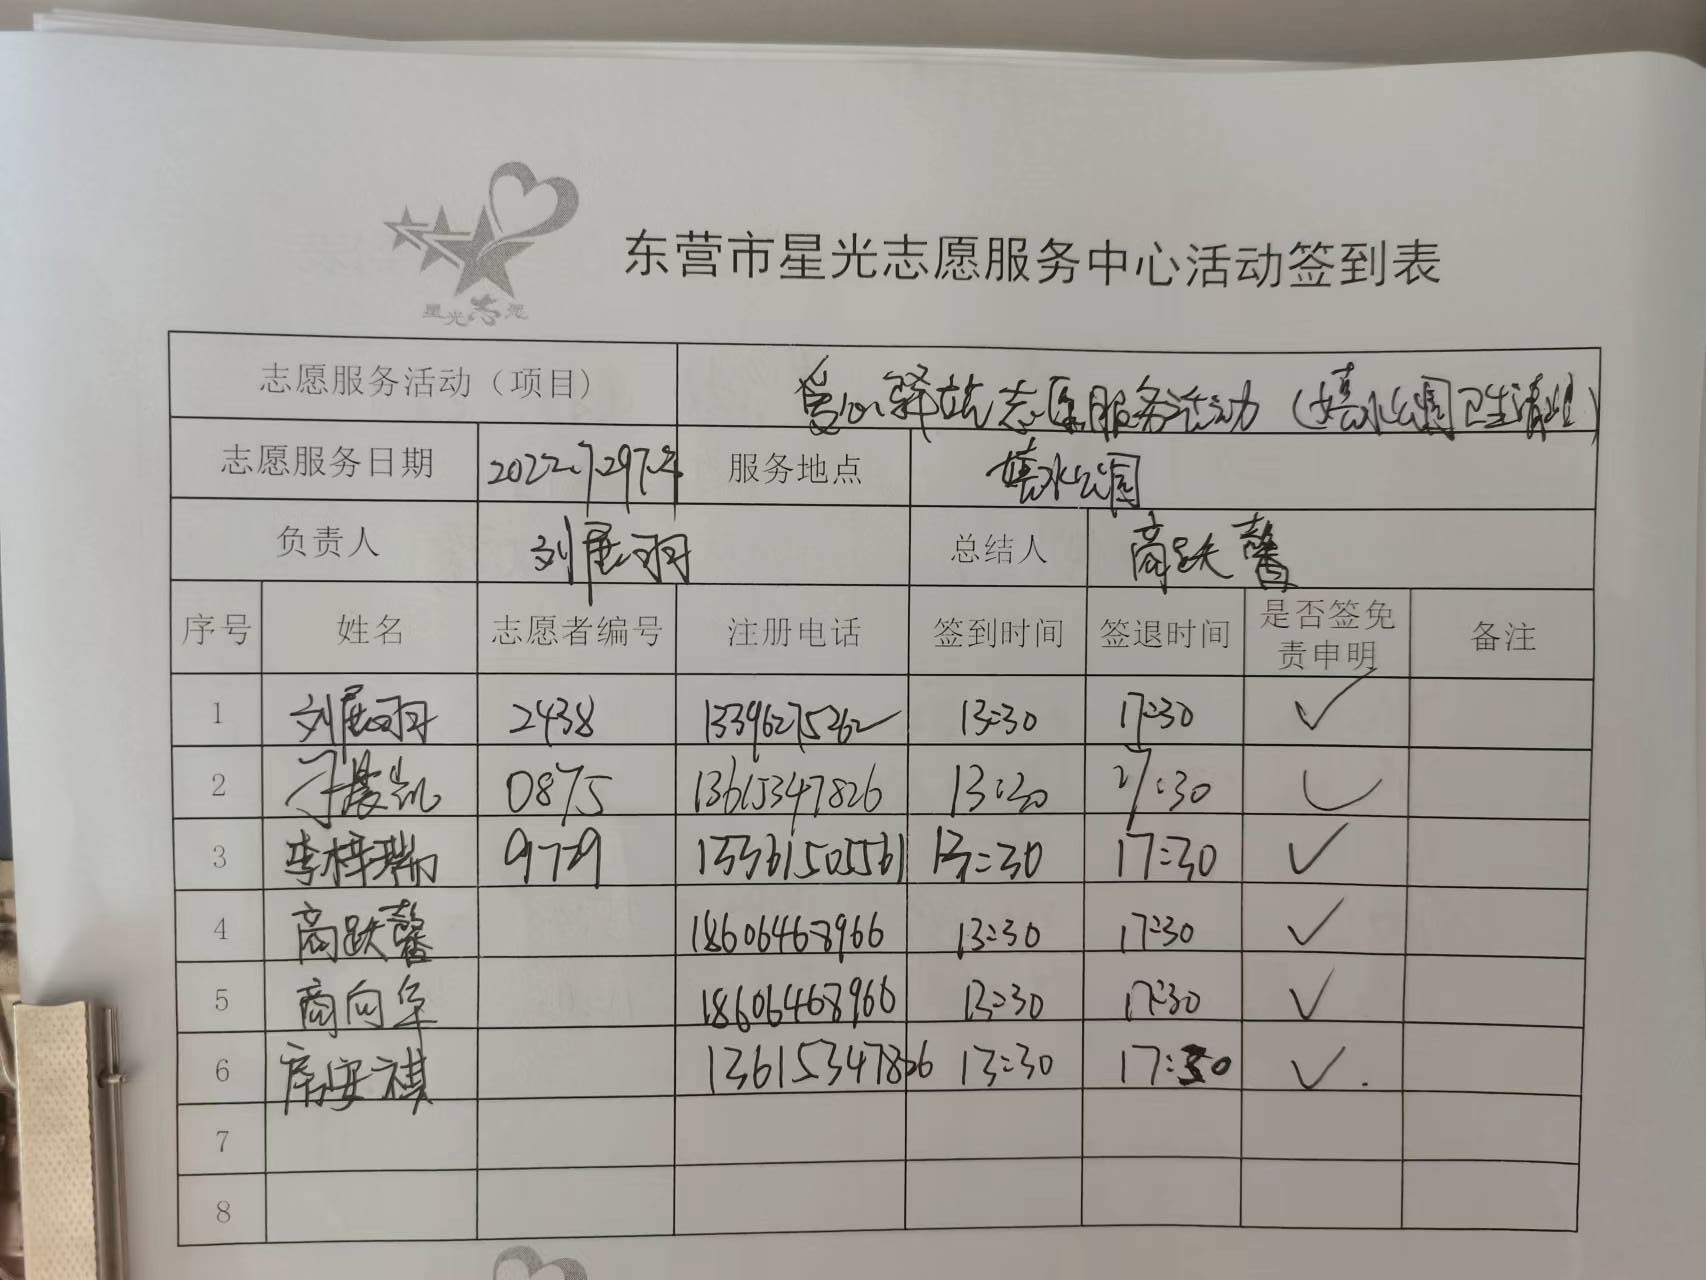 星光志愿
东营市星光志愿服务中心活动签到表
志愿服务活动（项目） 爱心驿站志愿服务活动（嬉水公园卫生清理）
志愿服务日期 2022.7.29 服务地点 嬉水公园
负责人 刘展羽 总结人 商跃馨
序号 姓名 志愿者编号 注册电话 签到时间 签退时间 是否签免责申明 备注
1 刘展羽 2438 13396275262 13:30 17:30 ✓
2 凯 0875 13615347826 13:30 17:30 ✓
3 李梓瑞 9779 13361505561 13:30 17:30 ✓
4 商跃馨 18606468966 13:30 17:30 ✓
5 商向华 18606468966 13:30 17:30 ✓
6 安祺 13615347826 13:30 17:30 ✓
7
8